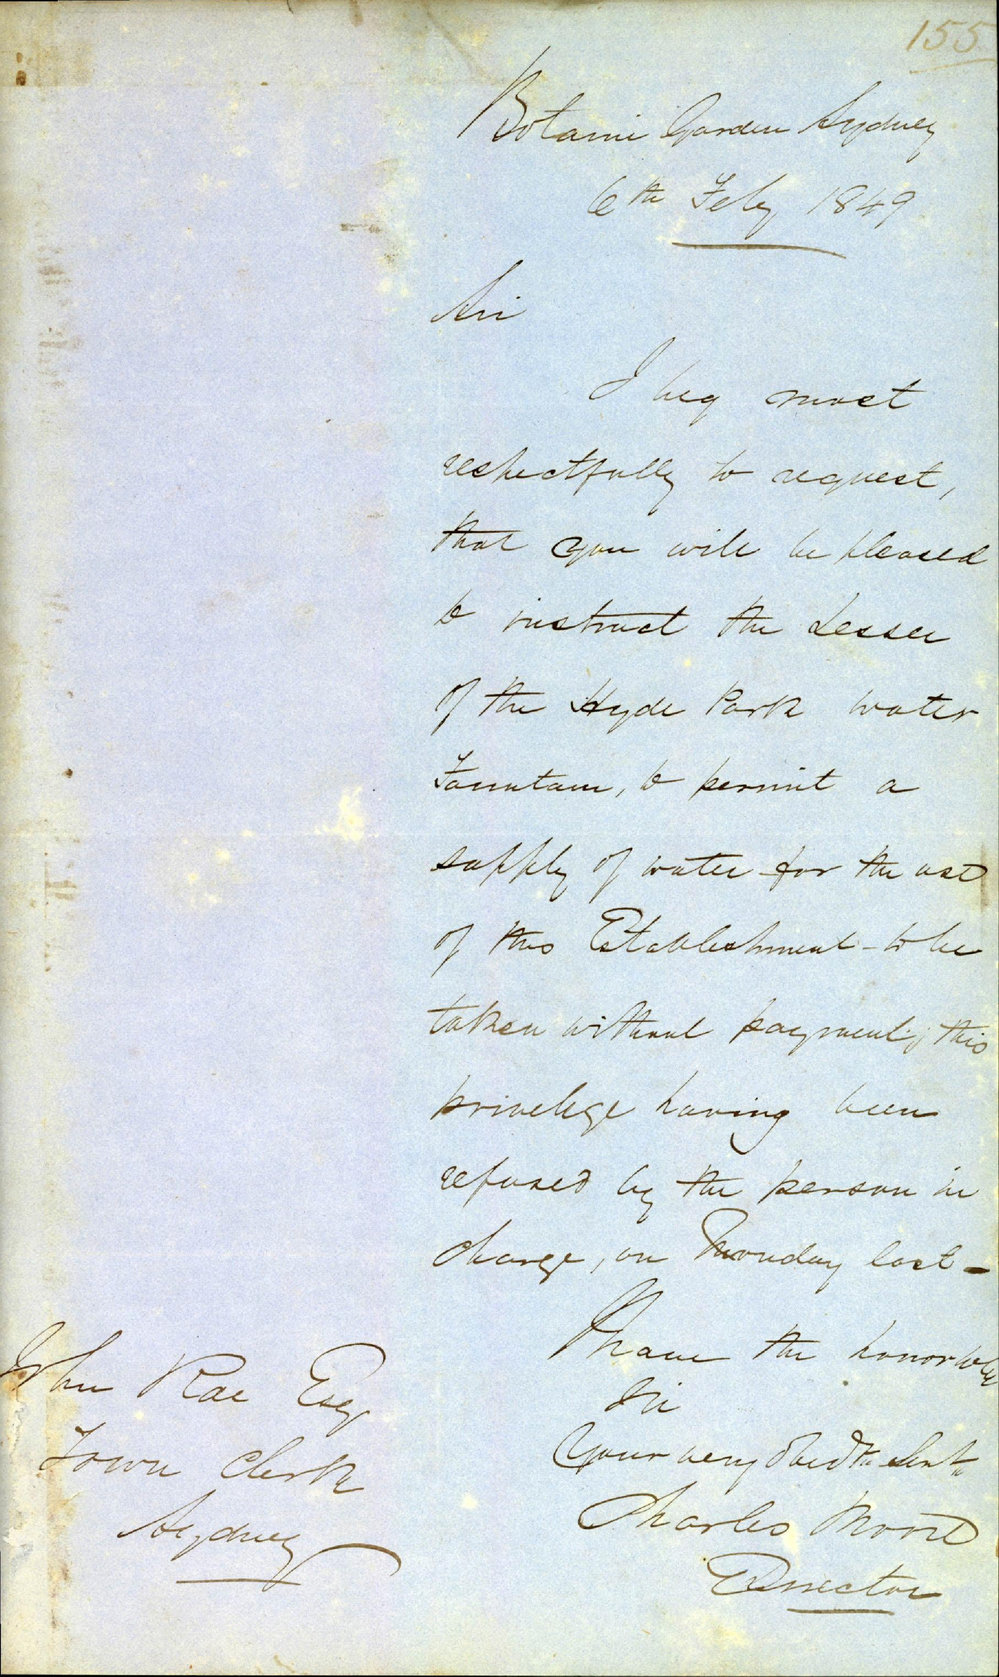 155
Botanic Garden Sydney
6th Feby 1849
Sir
I beg most
respectfully to request,
that you will be pleased
to instruct the Lessee
of the Hyde Park water
Fountain, to permit a
supply of water for the use
of this Establishment - to be
taken without payment; this
privelege having been
refused by the person in
charge, on Monday last -
I have the honor to be
Sir
Your very Obedt Servt
Charles Moore
Director
John Rae Esqr
Town Clerk
Sydney